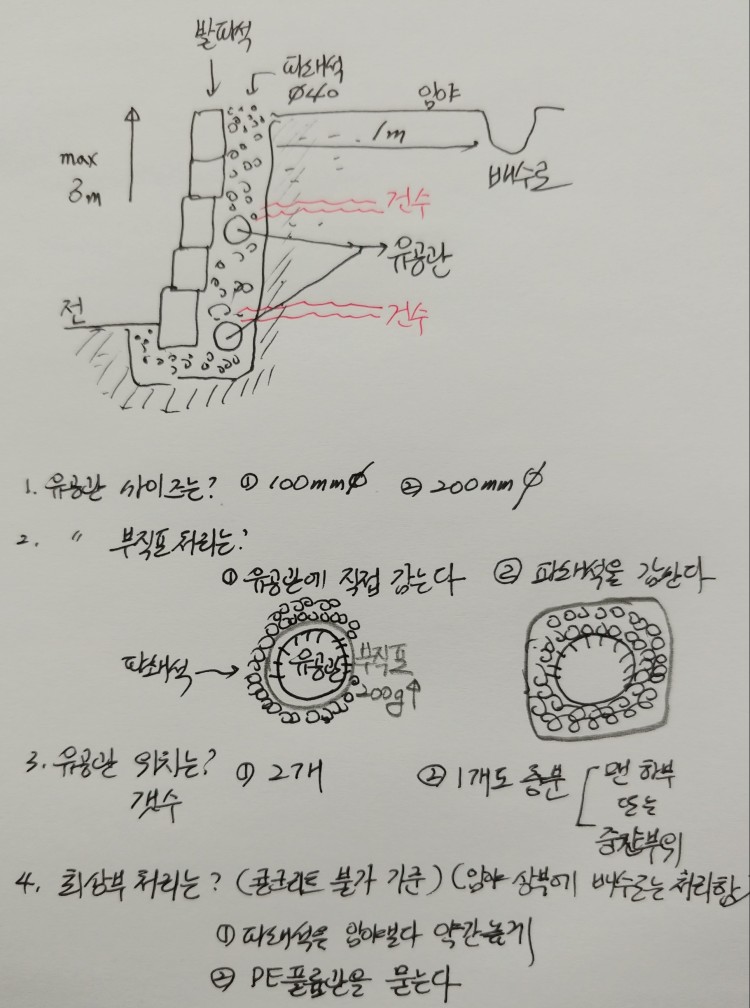 발파석
파쇄석
Ø40
임야
1m
배수로
max
3m
건수
유공관
전
건수
1. 유공관 사이즈는? ① 100mmØ ② 200mmØ
2. " 부직포처리는?
① 유공관에 직접 감는다 ② 파쇄석을 감싼다
파쇄석 → 유공관 부직포
200g↑
3. 유공관 위치는? ① 2개 ② 1개도 충분 맨 하부
갯수 또는
중간부위
4. 최상부 처리는? (콘크리트 불가 기준) (임야 상부에 배수로는 처리함)
① 파쇄석은 임야보다 약간높게
② PE플륨관을 묻는다